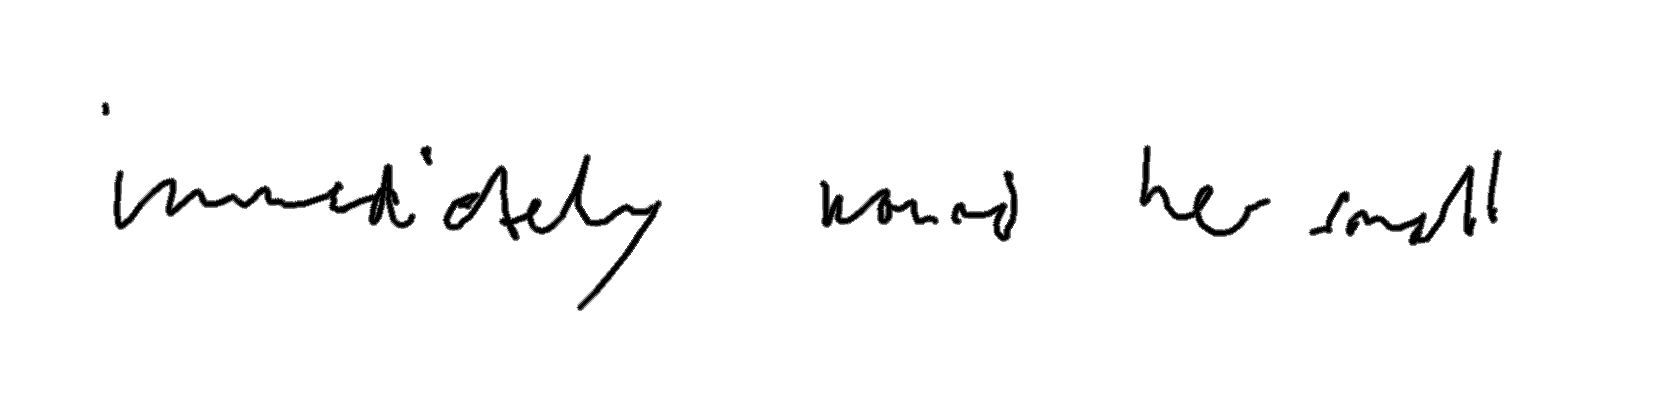 immediately wound her small